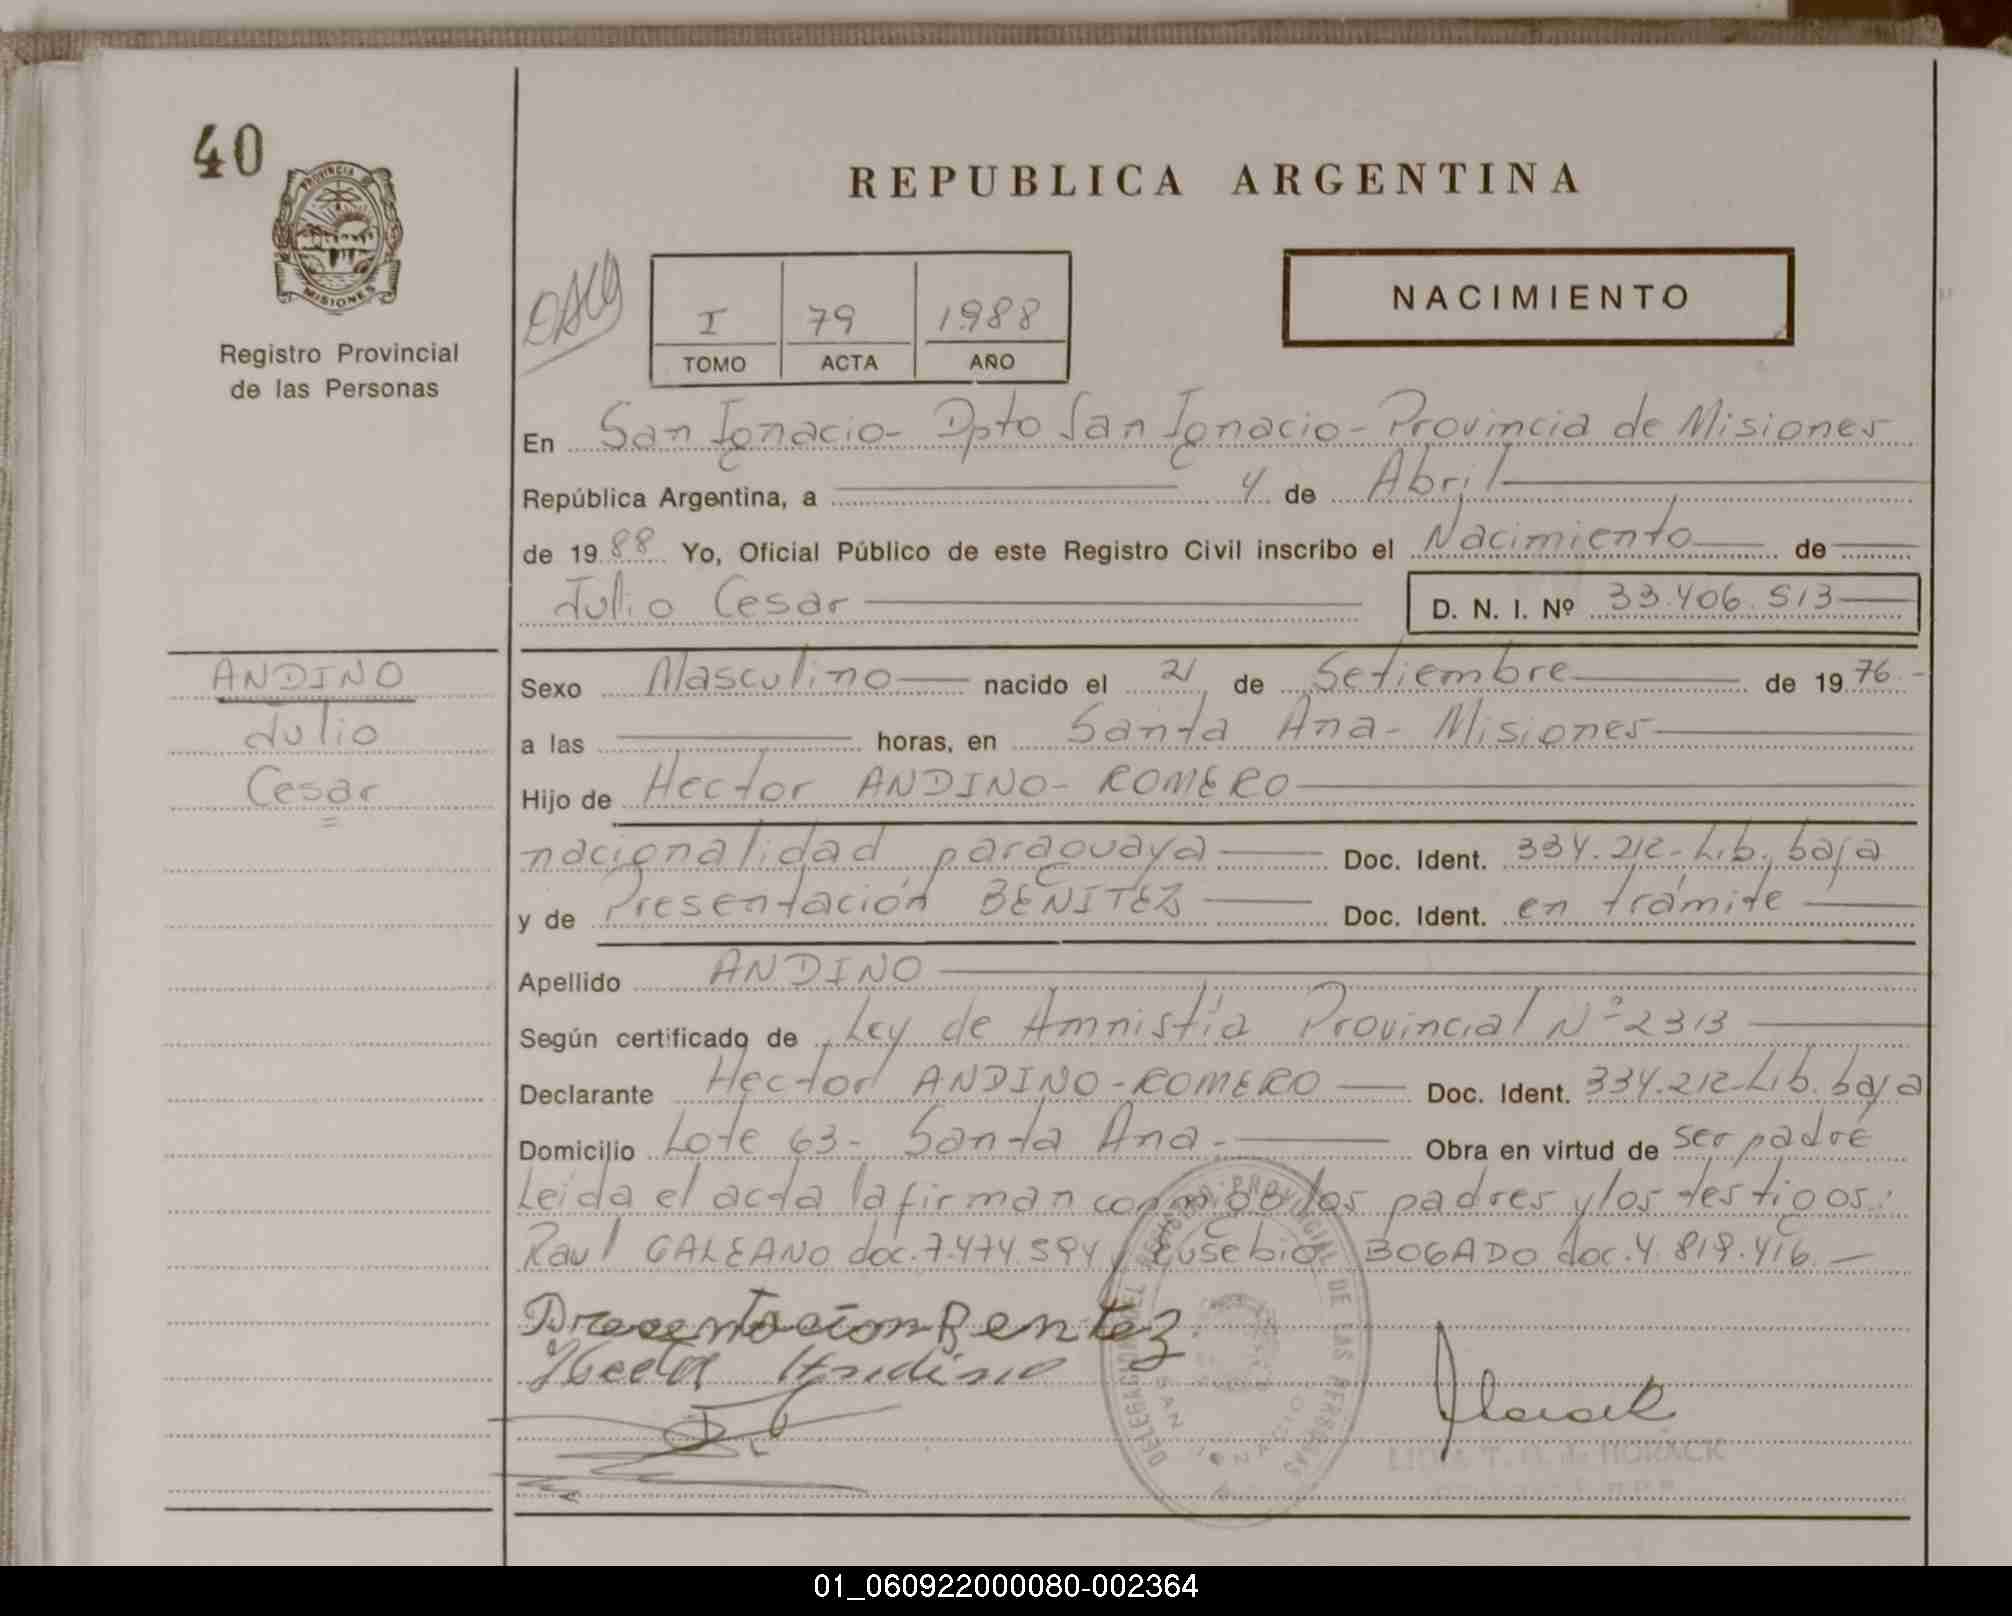 40
PROVINCIA DE
MISIONES
Registro Provincial
de las Personas
REPUBLICA ARGENTINA
I 79 1988
TOMO ACTA AÑO
NACIMIENTO
En San Ignacio - Dpto San Ignacio - Provincia de Misiones
República Argentina, a 4 de Abril
de 1988 Yo, Oficial Público de este Registro Civil inscribo el Nacimiento de
Julio Cesar D. N. I. Nº 33.406.513
ANDINO
Julio
Cesar
Sexo Masculino nacido el 21 de Setiembre de 1976.-
a las horas, en Santa Ana - Misiones
Hijo de Hector ANDINO - ROMERO
nacionalidad paraguaya Doc. Ident. 334.212 - Lib. baja
y de Presentación BENITEZ Doc. Ident. en trámite
Apellido ANDINO
Según certificado de Ley de Amnistía Provincial Nº 2313
Declarante Hector ANDINO - ROMERO Doc. Ident. 334.212 - Lib. baja
Domicilio Lote 63 - Santa Ana.- Obra en virtud de ser padre
Leida el acta la firman conmigo los padres y los testigos:
Raul GALEANO doc. 7.474.594 y Eusebio BOGADO doc. 4.819.416.-
Presentacion Bentez
Hector Andino
DELEGACION DEL REGISTRO PROVINCIAL DE LAS PERSONAS
SAN IGNACIO
HORACK
01_060922000080-002364